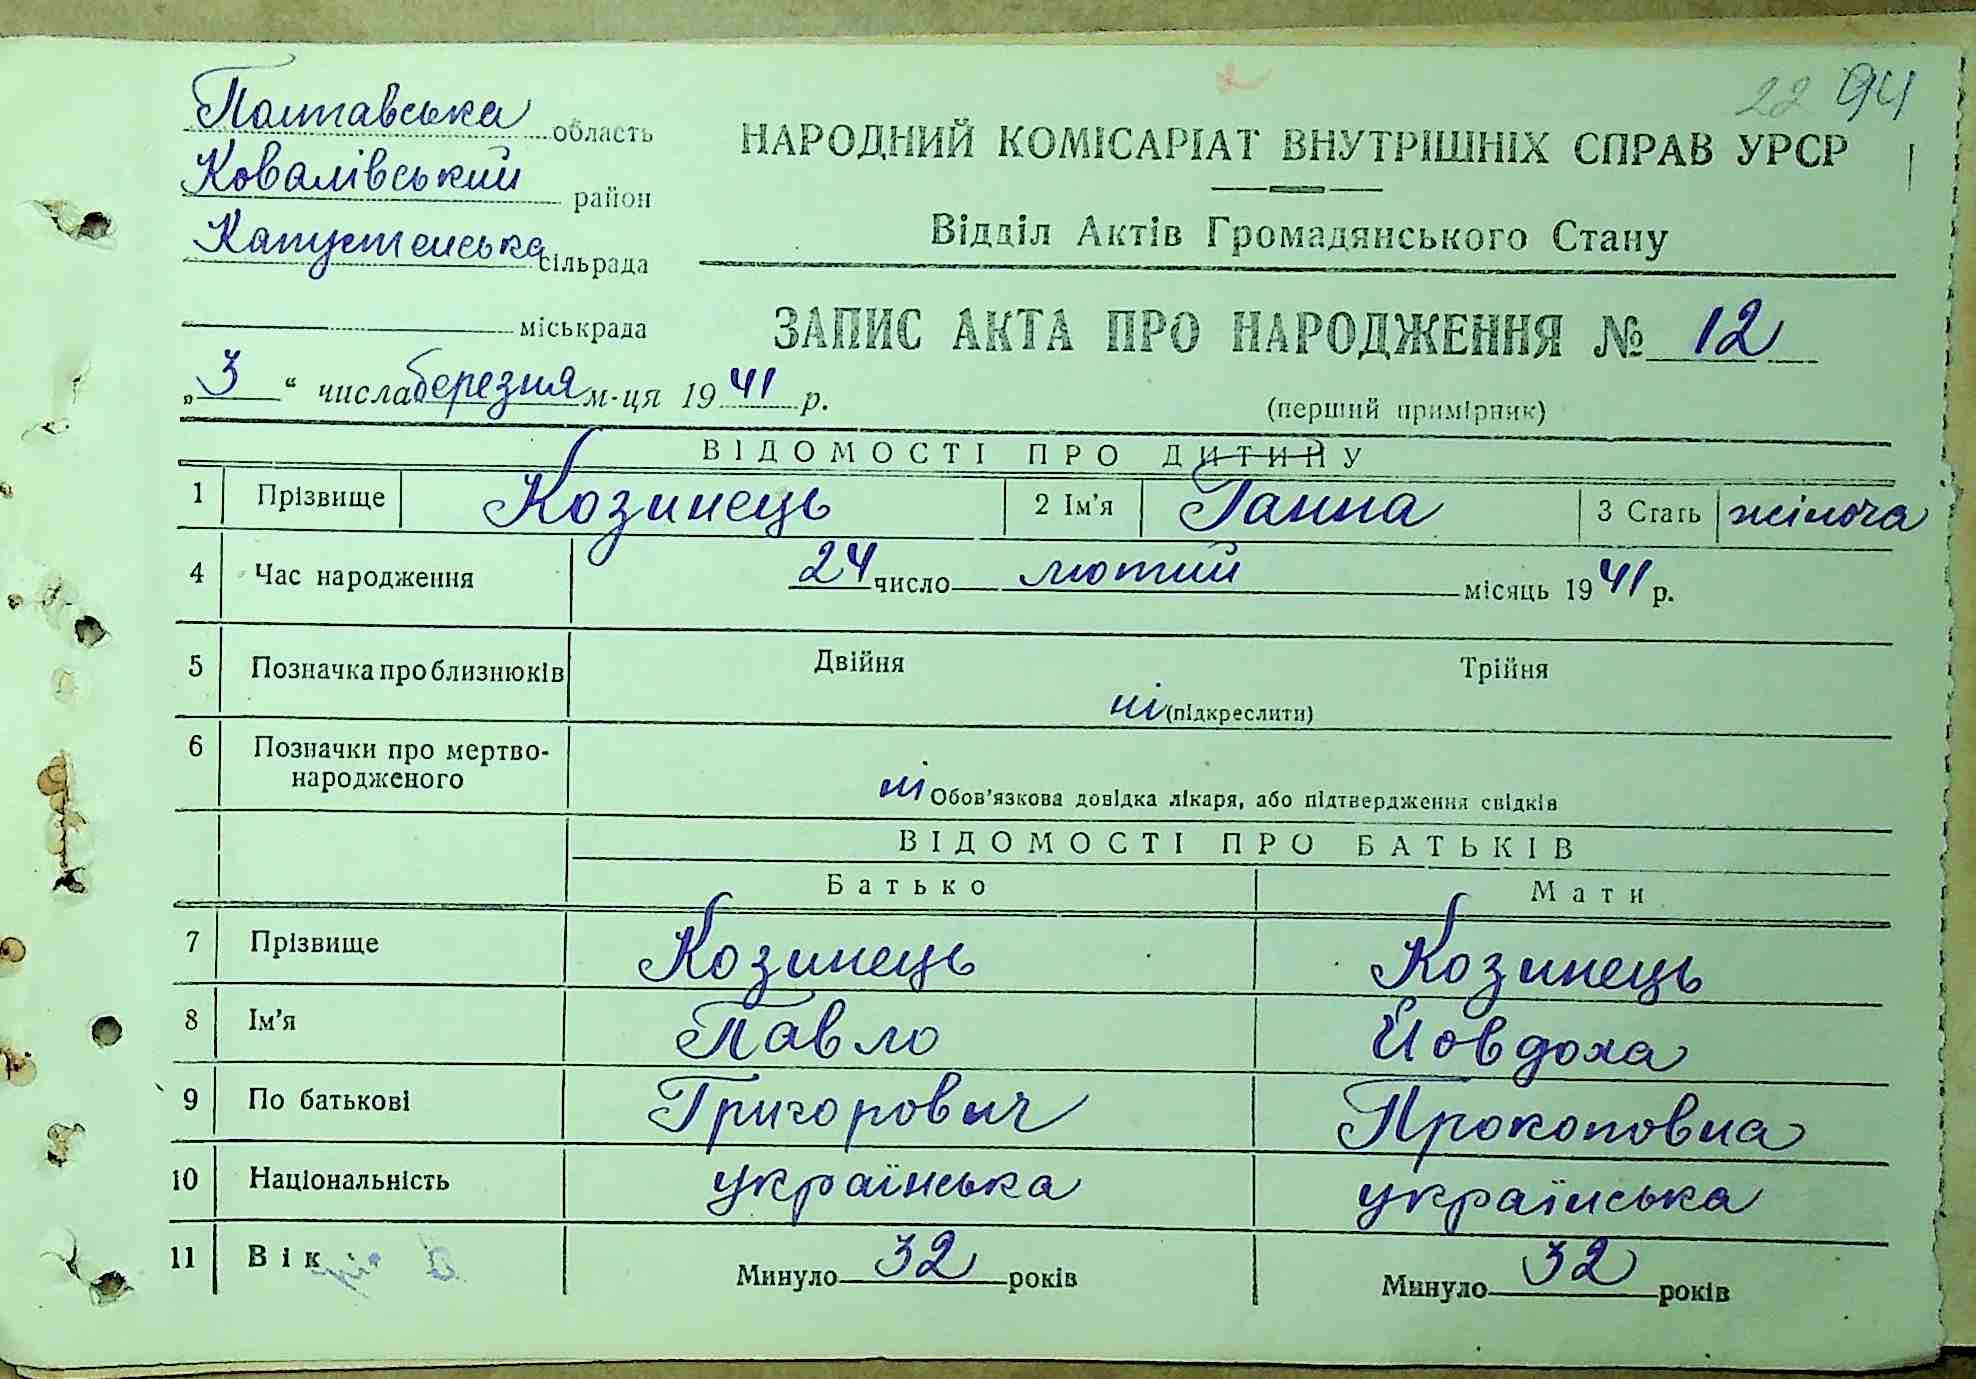 22 94
Полтавська область
Ковалівський район
Капустенська сільрада
міськрада
„3“ числа березня м-ця 1941 р.
НАРОДНИЙ КОМІСАРІАТ ВНУТРІШНІХ СПРАВ УРСР
Відділ Актів Громадянського Стану
ЗАПИС АКТА ПРО НАРОДЖЕННЯ № 12
(перший примірник)
ВІДОМОСТІ ПРО ДИТИНУ
1 Прізвище Козинець 2 Ім'я Ганна 3 Стать жіноча
4 Час народження 24 число лютий місяць 1941 р.
5 Позначка про близнюків Двійня Трійня
ні (підкреслити)
6 Позначки про мертво-
народженого
ні Обов'язкова довідка лікаря, або підтвердження свідків
ВІДОМОСТІ ПРО БАТЬКІВ
Батько Мати
7 Прізвище Козинець Козинець
8 Ім'я Павло Йовдоха
9 По батькові Григорович Прокоповна
10 Національність українська українська
11 Вік Минуло 32 років Минуло 32 років